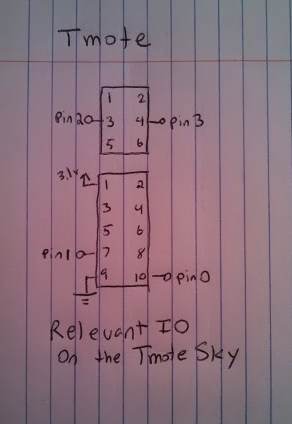 Tmote
1 2
pin2 3 4 pin3
5 6
3.1v 1 2
3 4
5 6
pin1 7 8
9 10 pin0
Relevant IO
On the Tmote Sky